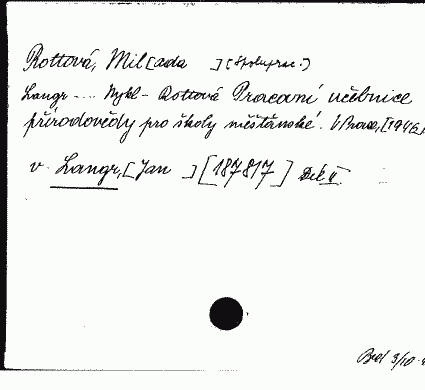 Rottová, Mil[ada ] [spoluprac.]
Langr ... Mykl - Rottová Pracovní učebnice
přírodovědy pro školy měšťanské. V Praze, [1946]
v. Langr, [Jan ] [1878/7 ] Dě II
3/10